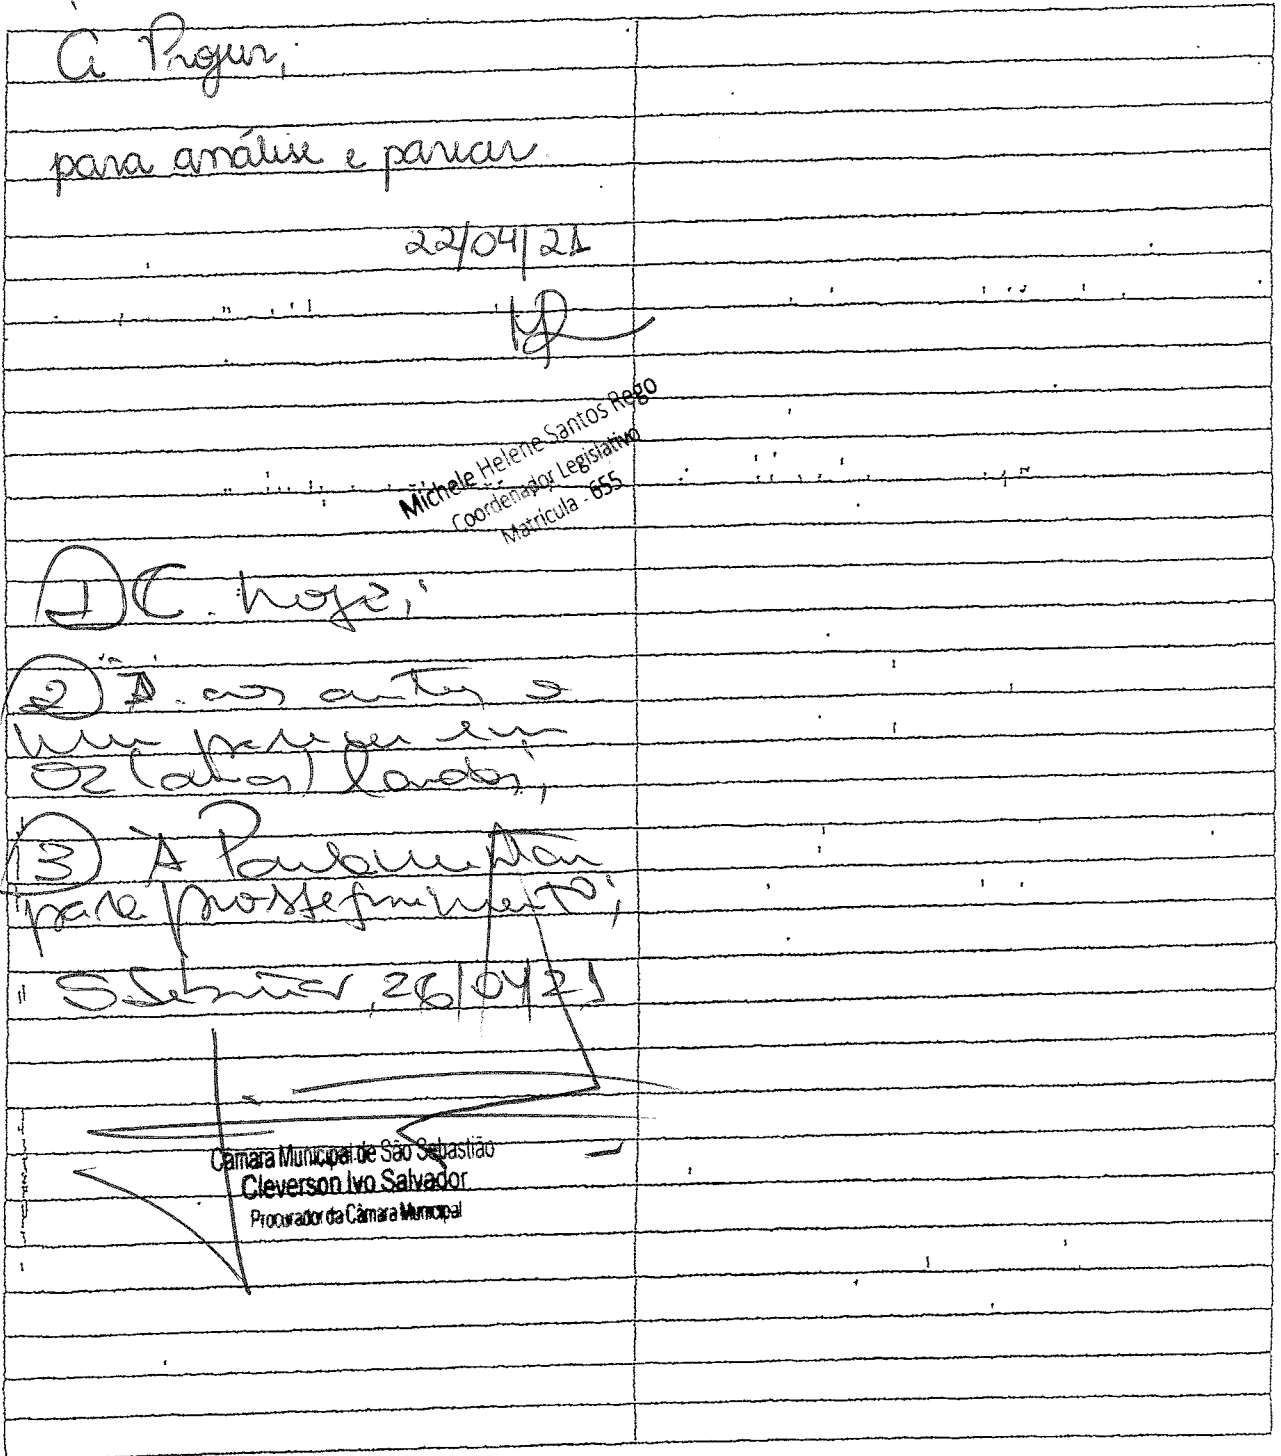 À Projur,
para análise e parecer
22/04/21
Michele Helene Santos Rego
Coordenador Legislativo
Matrícula - 655
1 C. hoje;
2 J. aos autos o
meu parecer em
02 (duas) laudas;
3 À Parlamentar
para prosseguimento;
S Sebastião, 26/04/21
Câmara Municipal de São Sebastião
Cleverson Ivo Salvador
Procurador da Câmara Municipal